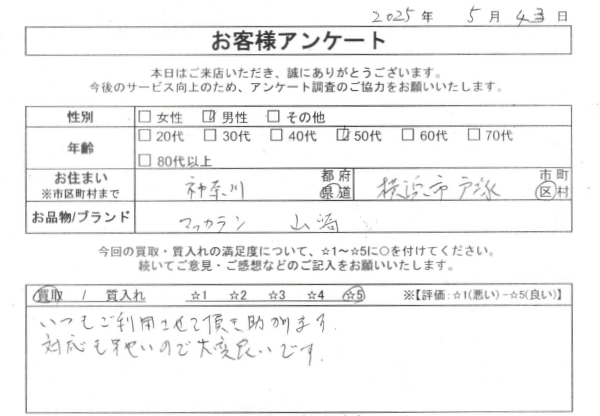 2025年 5月 43日
お客様アンケート
本日はご来店いただき、誠にありがとうございます。
今後のサービス向上のため、アンケート調査のご協力をお願いいたします。
性別 □ 女性 □ 男性 □ その他
年齢 □ 20代 □ 30代 □ 40代 □ 50代 □ 60代 □ 70代
□ 80代以上
お住まい ※市区町村まで 神奈川 都府県道 横浜市戸塚 市町区村
お品物/ブランド マッカラン 山崎
今回の買取・質入れの満足度について、☆1～☆5に○を付けてください。
続いてご意見・ご感想などのご記入をお願いいたします。
買取 / 質入れ ☆1 ☆2 ☆3 ☆4 ☆5 ※【評価:☆1(悪い)–☆5(良い)】
いつもご利用させて頂き助かります.
対応も早いので大変良いです.